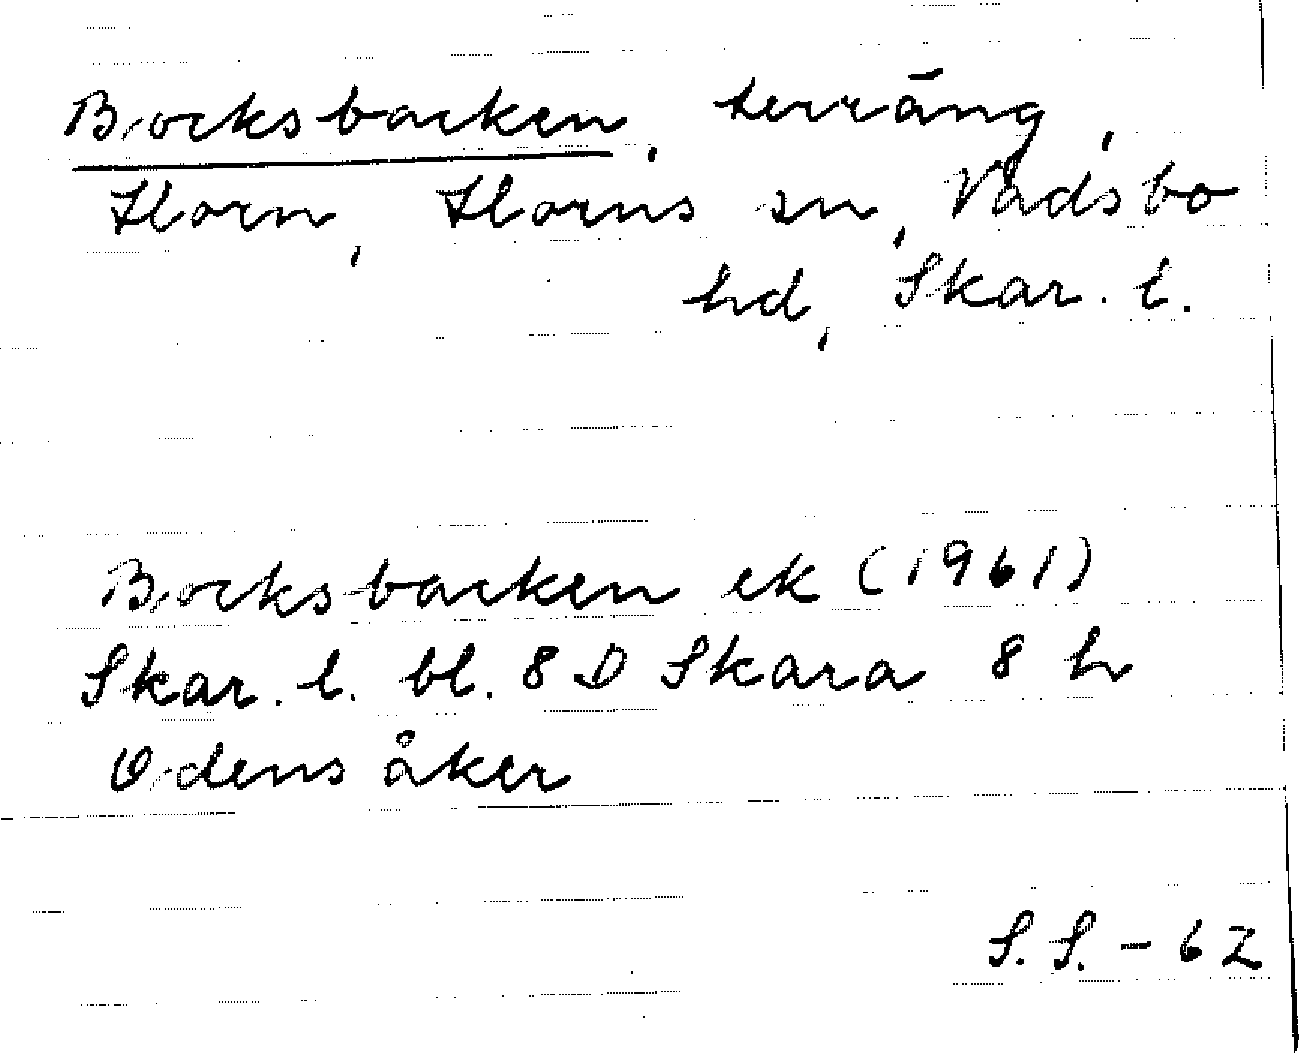 Bocksbacken, terräng,
Horn, Horns sn, Vadsbo
hd, Skar. l.
Bocksbacken ek (1961)
Skar. l. bl. 8 D Skara 8 h
Odensåker
S. S. - 62